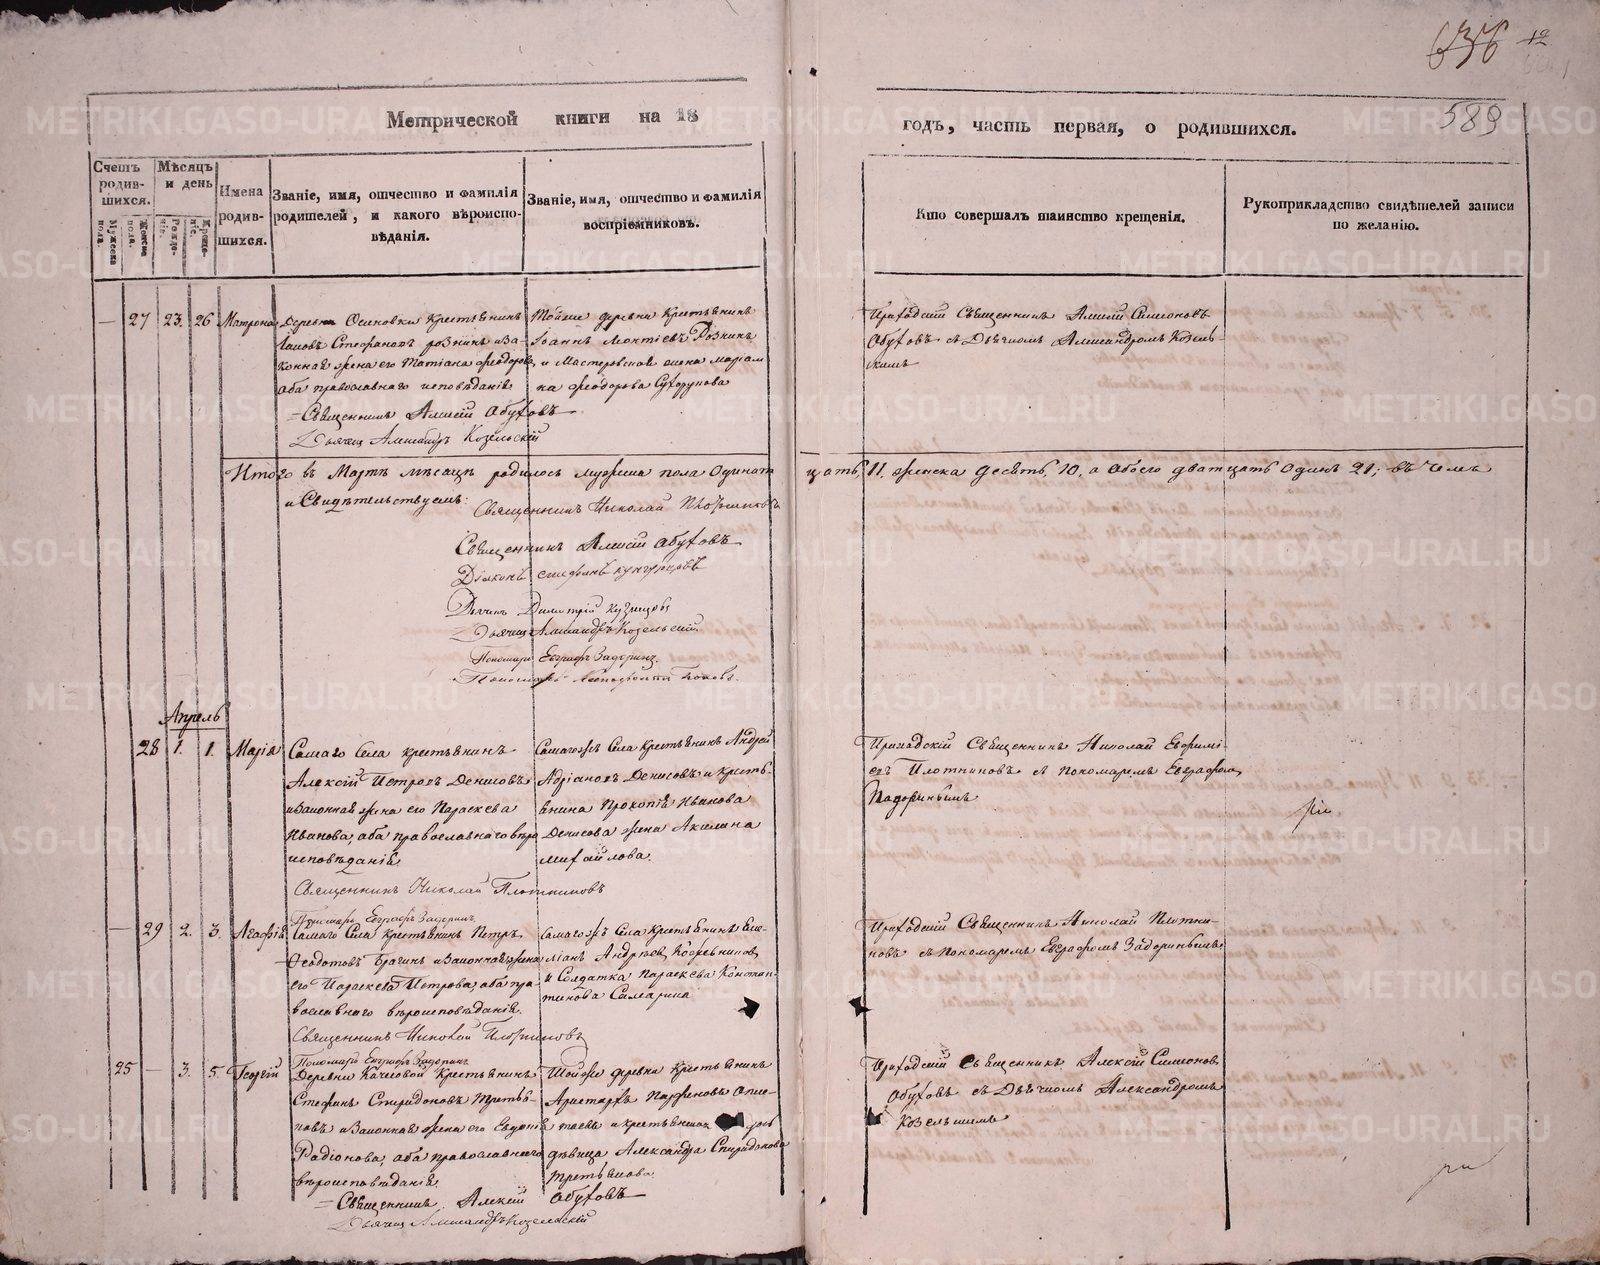 636
12
589
Метрической книги на 18
годъ, часть первая, о родившихся.
Счетъ родив-
шихся.
Мѣсяцъ
и день
Мужеска
пола.
Женска
пола.
Рожде-
нія.
Креще-
нія.
Имена
родив-
шихся.
Званіе, имя, отчество и фамилія
родителей, и какого вѣроиспо-
вѣданія.
Званіе, имя, отчество и фамилія
воспріемниковъ.
Кто совершалъ таинство крещенія.
Рукоприкладство свидѣтелей записи
по желанію.
— 27 23. 26 Матрона
Деревни Осиновки Крестьянинъ
Стефановъ и За-
конная жена его Татіана Феодоров
оба православнаго исповѣданія
=Священникъ Алексій Обуховъ
Дьячекъ Александръ Козельскій
Тойже деревни Крестьянинъ
Іоаннъ
и Мастерской жена Маріам
на Феодорова Сухорукова
Приходскій Священникъ Алексій Симеоновъ
Обуховъ съ Дьячкомъ Александромъ Козель-
скимъ
Итого въ Мартѣ мѣсяцѣ родилось мужеска пола Одинат
цать, 11. женска Десять, 10, а обоего дватцать одинъ 21; въ чемъ
и Свидѣтельствуемъ:
Священникъ Николай Плотниковъ
Священникъ Алексій Обуховъ
Діаконъ Стефанъ Кунгурцовъ
Дьячекъ Димитрій Кузнецовъ
Дьячекъ Александръ Козельскій.
Пономарь Евграфъ Задоринъ.
Пономарь Поповъ.
Апрель
28 1. 1. Марія
Самаго Села крестьянинъ
Алексій Петровъ Денисовъ
и Законная жена его Параскева
Иванова, оба православнаго вѣро
исповѣданія.
Священникъ Николай Плотниковъ
Пономарь Евграфъ Задоринъ.
Самагожъ Села Крестьянинъ Андрей
Адріановъ Денисовъ и Кресть-
янина Прокопія Иванова
Денисова жена Акилина
Михайлова.
Приходскій Священникъ Николай Евфимі-
евъ Плотниковъ съ Пономаремъ Евграфом
Задоринымъ
— 29 2. 3. Агафія
Самаго Села Крестьянинъ Петръ
Феодотовъ Брагинъ и Законная жена
его Параскева Петрова, оба пра-
вославнаго вѣроисповѣданія.
Священникъ Николай Плотниковъ
Пономарь Евграфъ Задоринъ
Самагожъ Села Крестьянинъ Еме-
ліанъ Андреевъ
и Солдатка Параскева Констан-
тинова Самарина
Приходскій Священникъ Николай Плотни-
ковъ съ Пономаремъ Евграфомъ Задоринымъ.
25 — 3. 5. Георгій
Деревни Качковой Крестьянинъ
Стефанъ Спиридоновъ Третья-
ковъ и Законная жена его Евдокія
Радіонова, оба православнаго
вѣроисповѣданія.
=Священникъ Алексій Обуховъ
Дьячекъ Александръ Козельскій
Тойже деревни Крестьянинъ
Аристархъ Парфеновъ
и крестьянская
дѣвица Александра Спиридонова
Третьякова
Приходскій Священникъ Алексій Симеонов
Обуховъ съ Дьячкомъ Александромъ
Козельскимъ